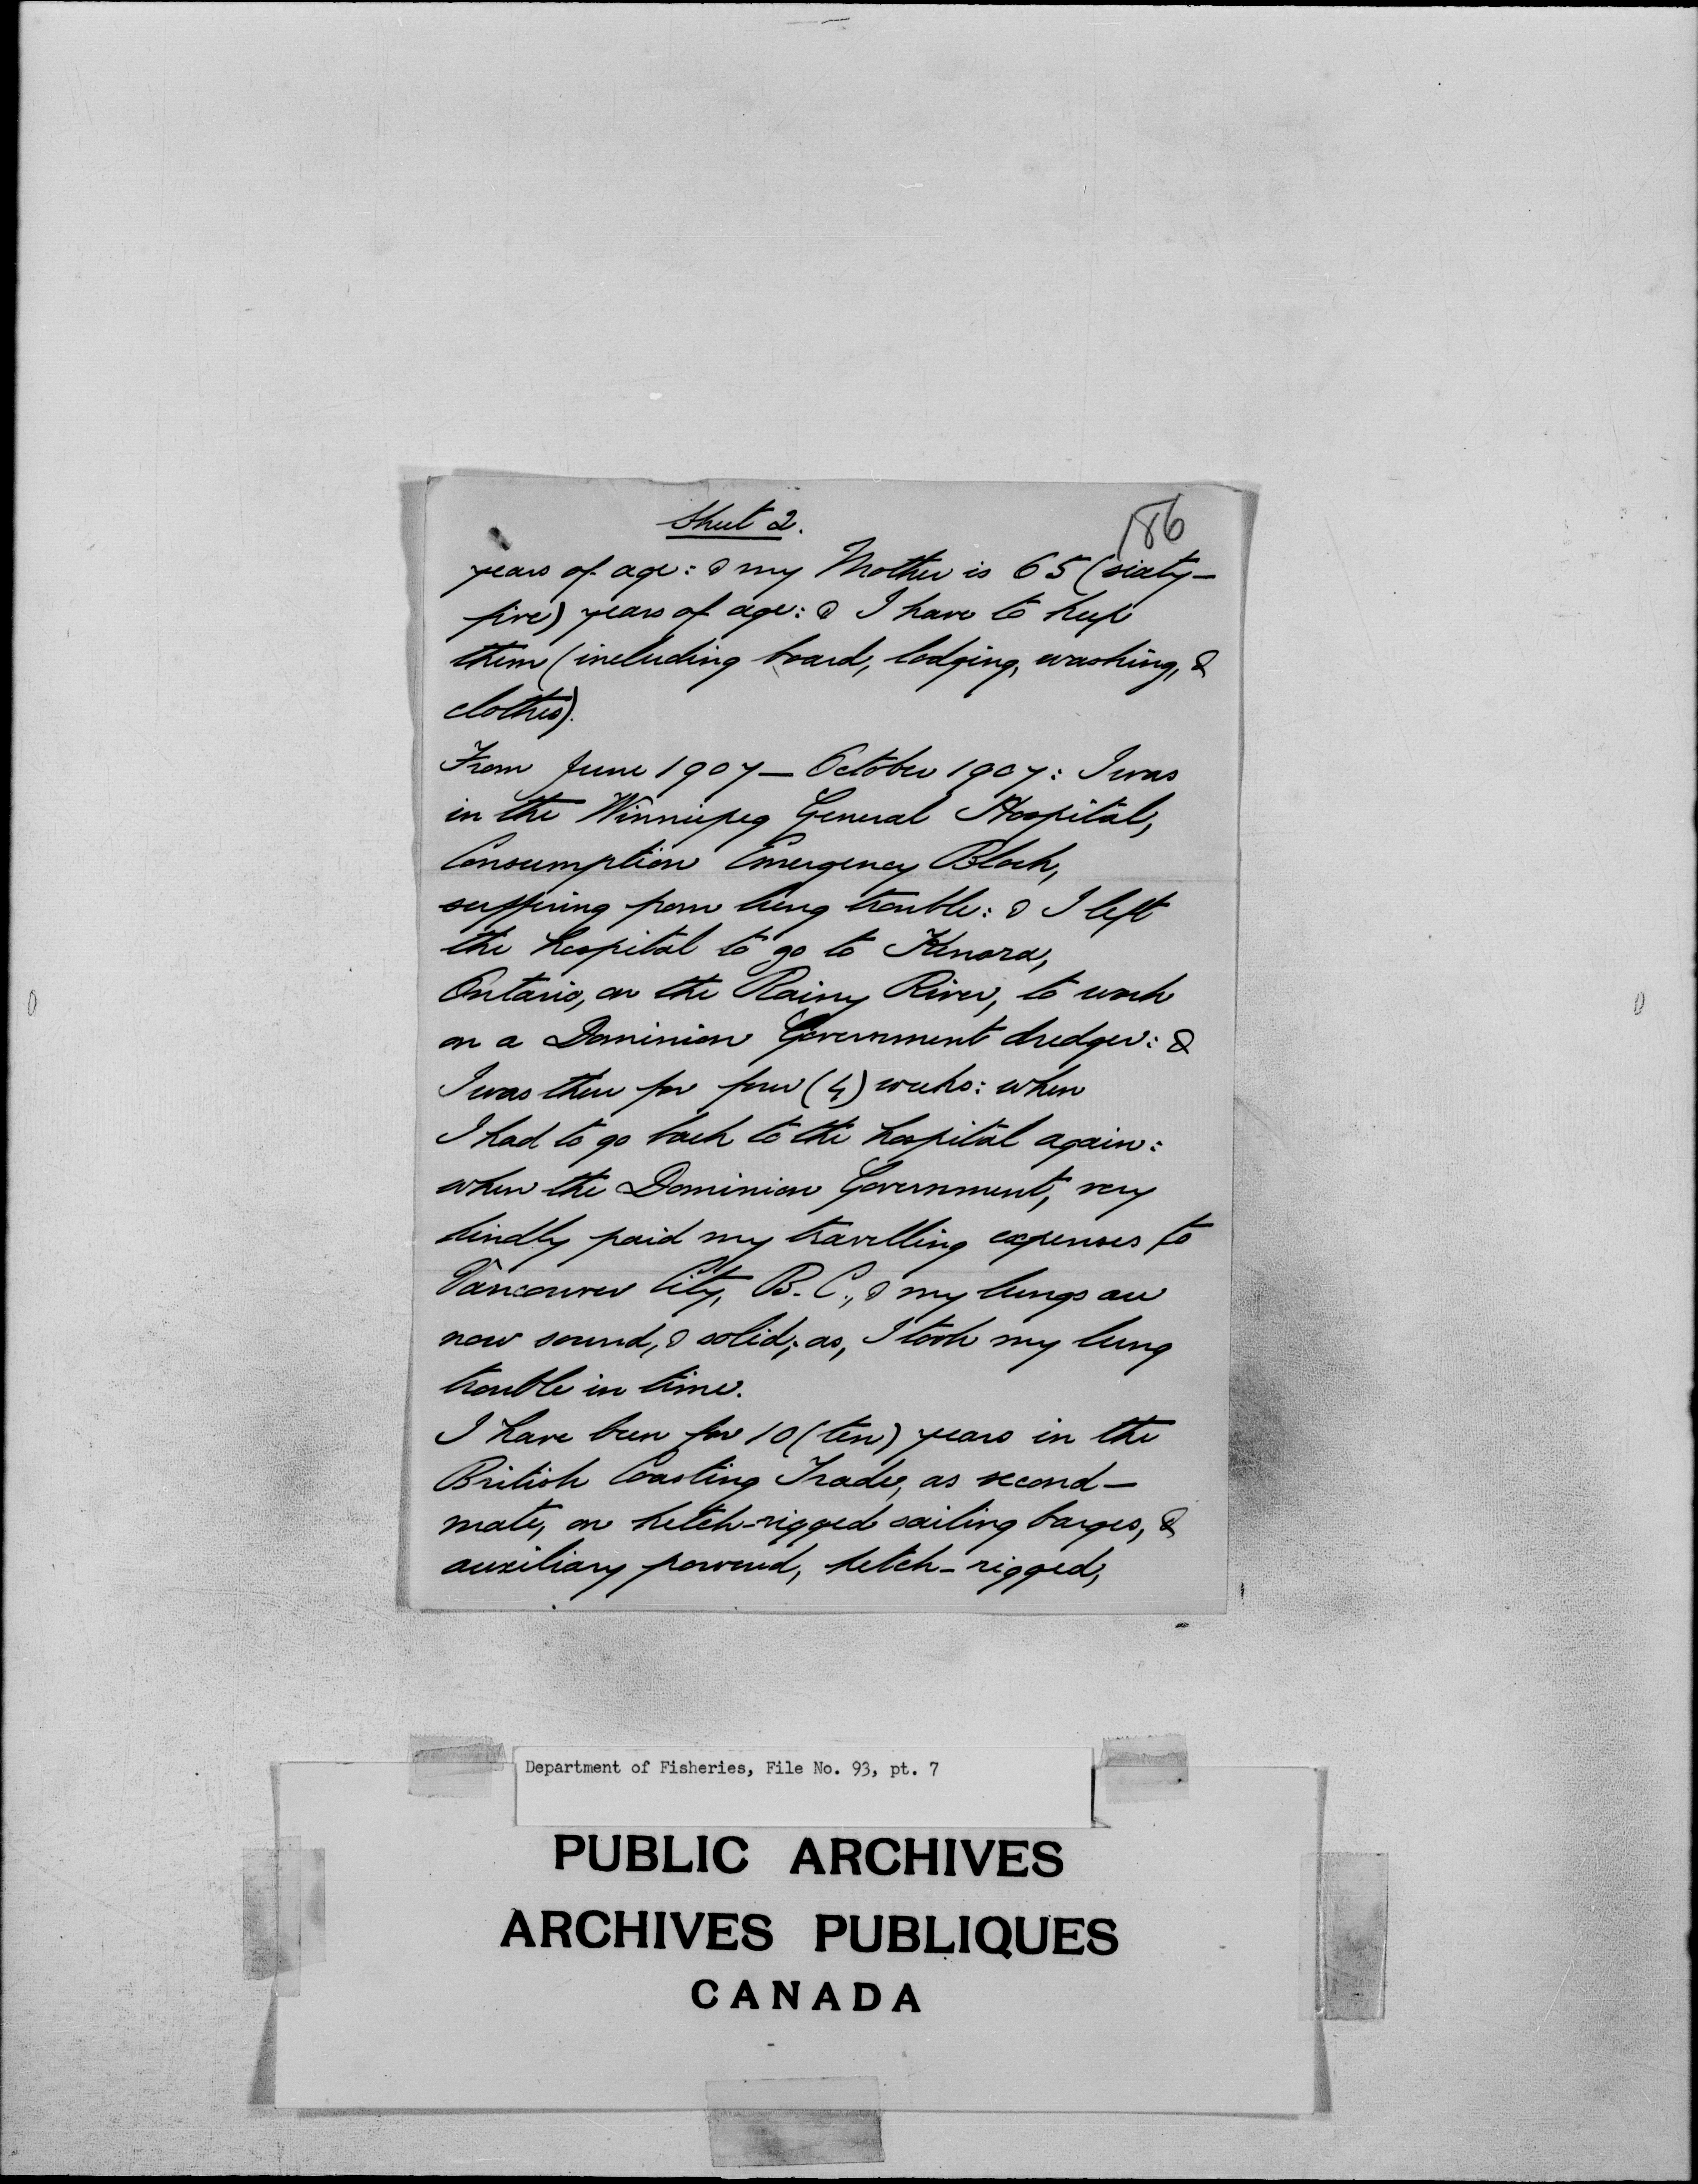 Sheet 2.
186
years of age: & my Mother is 65 (sixty-
five) years of age: & I have to keep
them (including board, lodging, washing, &
clothes).
From June 1907 — October 1907: I was
in the Winnipeg General Hospital,
Consumption Emergency Block,
suffering from lung trouble: & I left
the hospital to go to Kenora,
Ontario, on the Rainy River, to work
on a Dominion Government dredger: &
I was there for four (4) weeks: when
I had to go back to the hospital again:
when the Dominion Government, very
kindly paid my travelling expenses to
Vancouver City, B.C., & my lungs are
now sound, & solid; as, I took my lung
trouble in time.
I have been for 10 (ten) years in the
British Coasting Trade, as second-
mate, on ketch-rigged sailing barges, &
auxiliary powered, ketch-rigged,
Department of Fisheries, File No. 93, pt. 7
PUBLIC ARCHIVES
ARCHIVES PUBLIQUES
CANADA